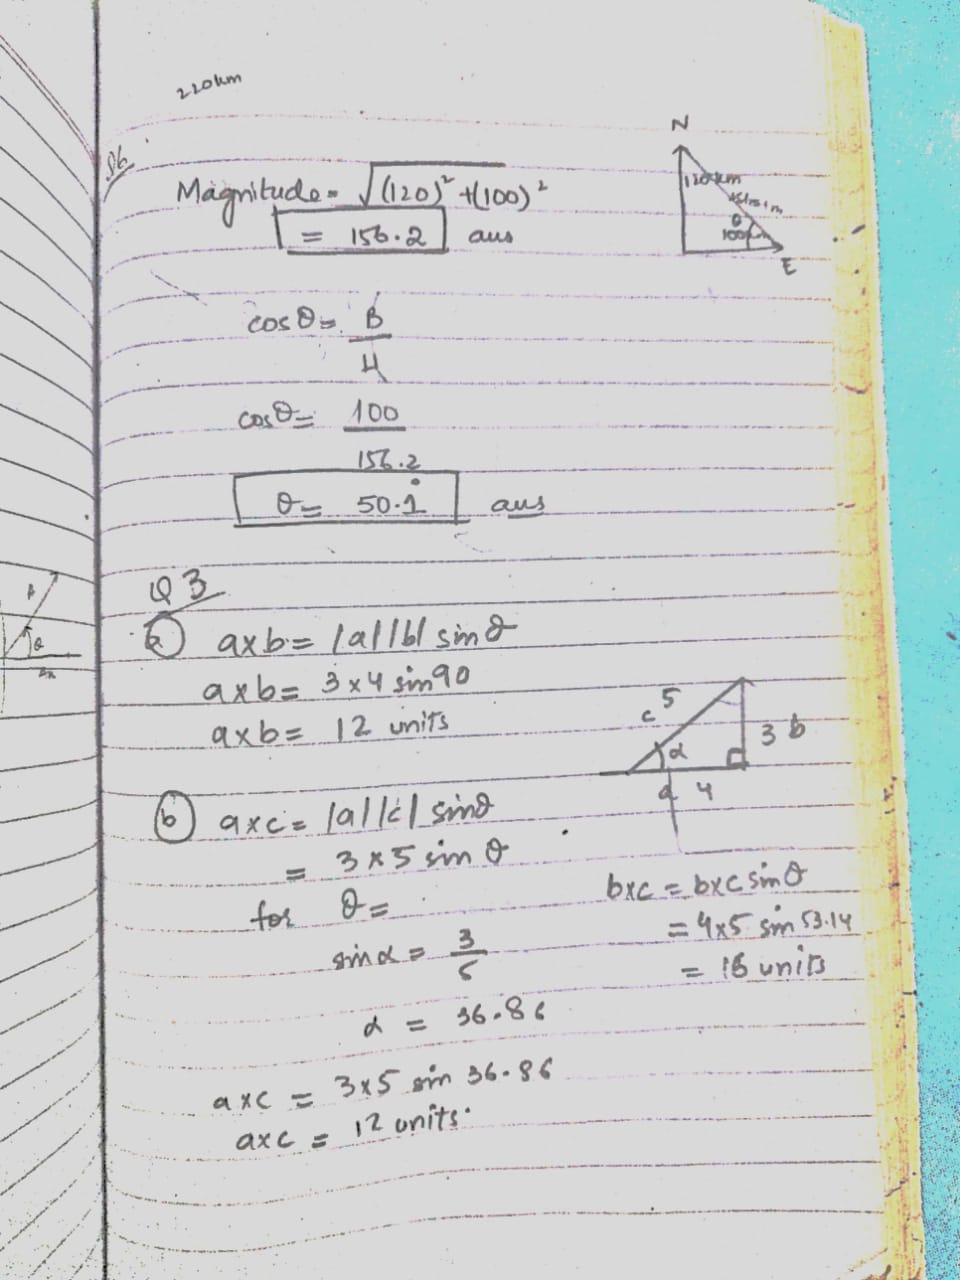 220km
Q6
Magnitude = √(120)² + (100)²
= 156.2 ans
N
120km
θ
100km
E
cosθ = B
H
cosθ = 100
156.2
θ = 50.1° ans
Q3
a axb = |a||b| sinθ
axb = 3x4 sin90
axb = 12 units
c 5
α
3 b
a 4
b axc = |a||c| sinθ
= 3x5 sinθ
for θ =
sinα = 3
5
α = 36.86
axc = 3x5 sin 36.86
axc = 12 units.
bxc = bxc sinθ
= 4x5 sin 53.14
= 16 units
A
θ